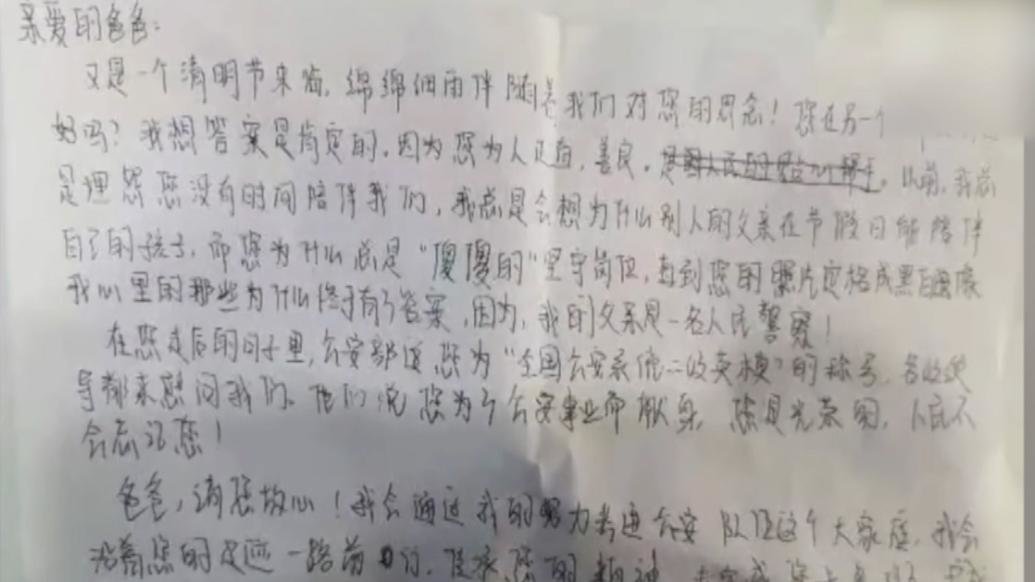 亲爱的爸爸：
又是一个清明节来临，绵绵细雨伴随着我们对您的思念！您在另一个
好吗？我想答案是肯定的，因为您为人正直，善良。以前，我总
是埋怨您没有时间陪伴我们，我总是会想为什么别人的父亲在节假日能陪伴
自己的孩子，而您为什么总是“傻傻的”坚守岗位，直到您的照片定格成黑白画像
我心里的那些为什么终于有了答案，因为，我的父亲是一名人民警察！
在您走后的日子里，公安部追您为“全国公安系统二级英模”的称号，各级领
导都来慰问我们。他们说您为了公安事业而献身，您是光荣的，人民不
会忘记您！
爸爸，请您放心！我会通过我的努力考进公安队伍这个大家庭，我会
沿着您的足迹一路前行，继承您的精神，